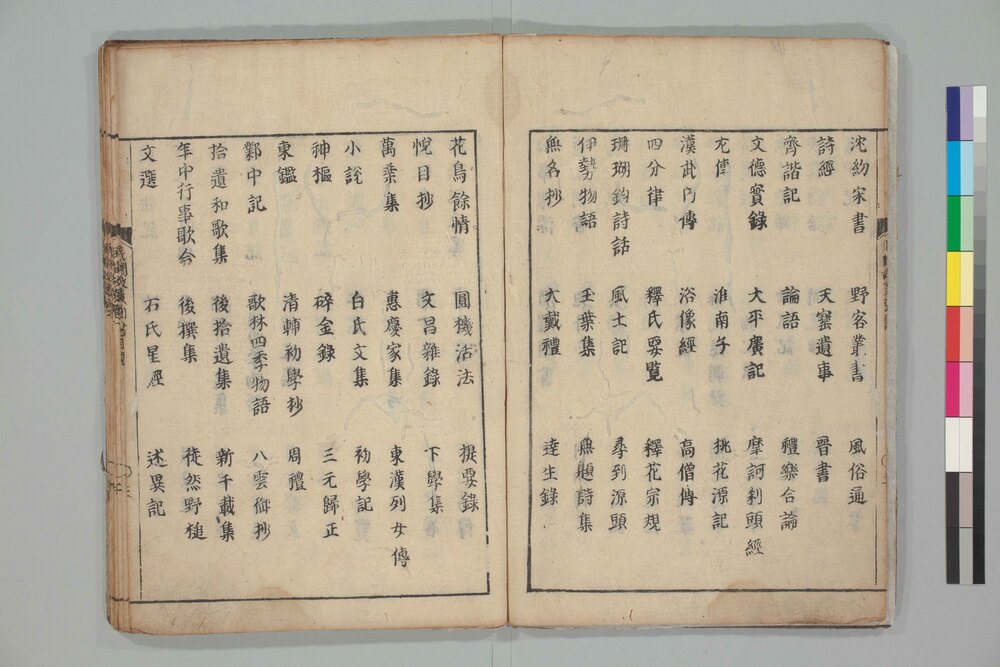 沈約宋書 野客叢書 風俗通
詩經 天寳遺事 晉書
齊諧記 論語 禮樂合論
文德實錄 大平廣記 摩訶刹頭經
左傳 淮南子 桃花源記
漢武内傳 浴像經 高僧傳
四分律 釋氏要覧 釋花宗規
珊瑚鈎詩話 風土記 尋到源頭
伊勢物語 玉葉集 無題詩集
無名抄 大戴禮 達生錄
花鳥餘情 圓機活法 撰要錄
悅目抄 文昌雜錄 下學集
萬葉集 惠慶家集 東漢列女傳
小說 白氏文集 初學記
神樞 碎金錄 三元歸正
東鑑 清輔初學抄 周禮
鄴中記 歌林四季物語 八雲御抄
拾遺和歌集 後拾遺集 新千載集
年中行事歌合 後撰集 徒然野槌
文選 石氏星經 述異記